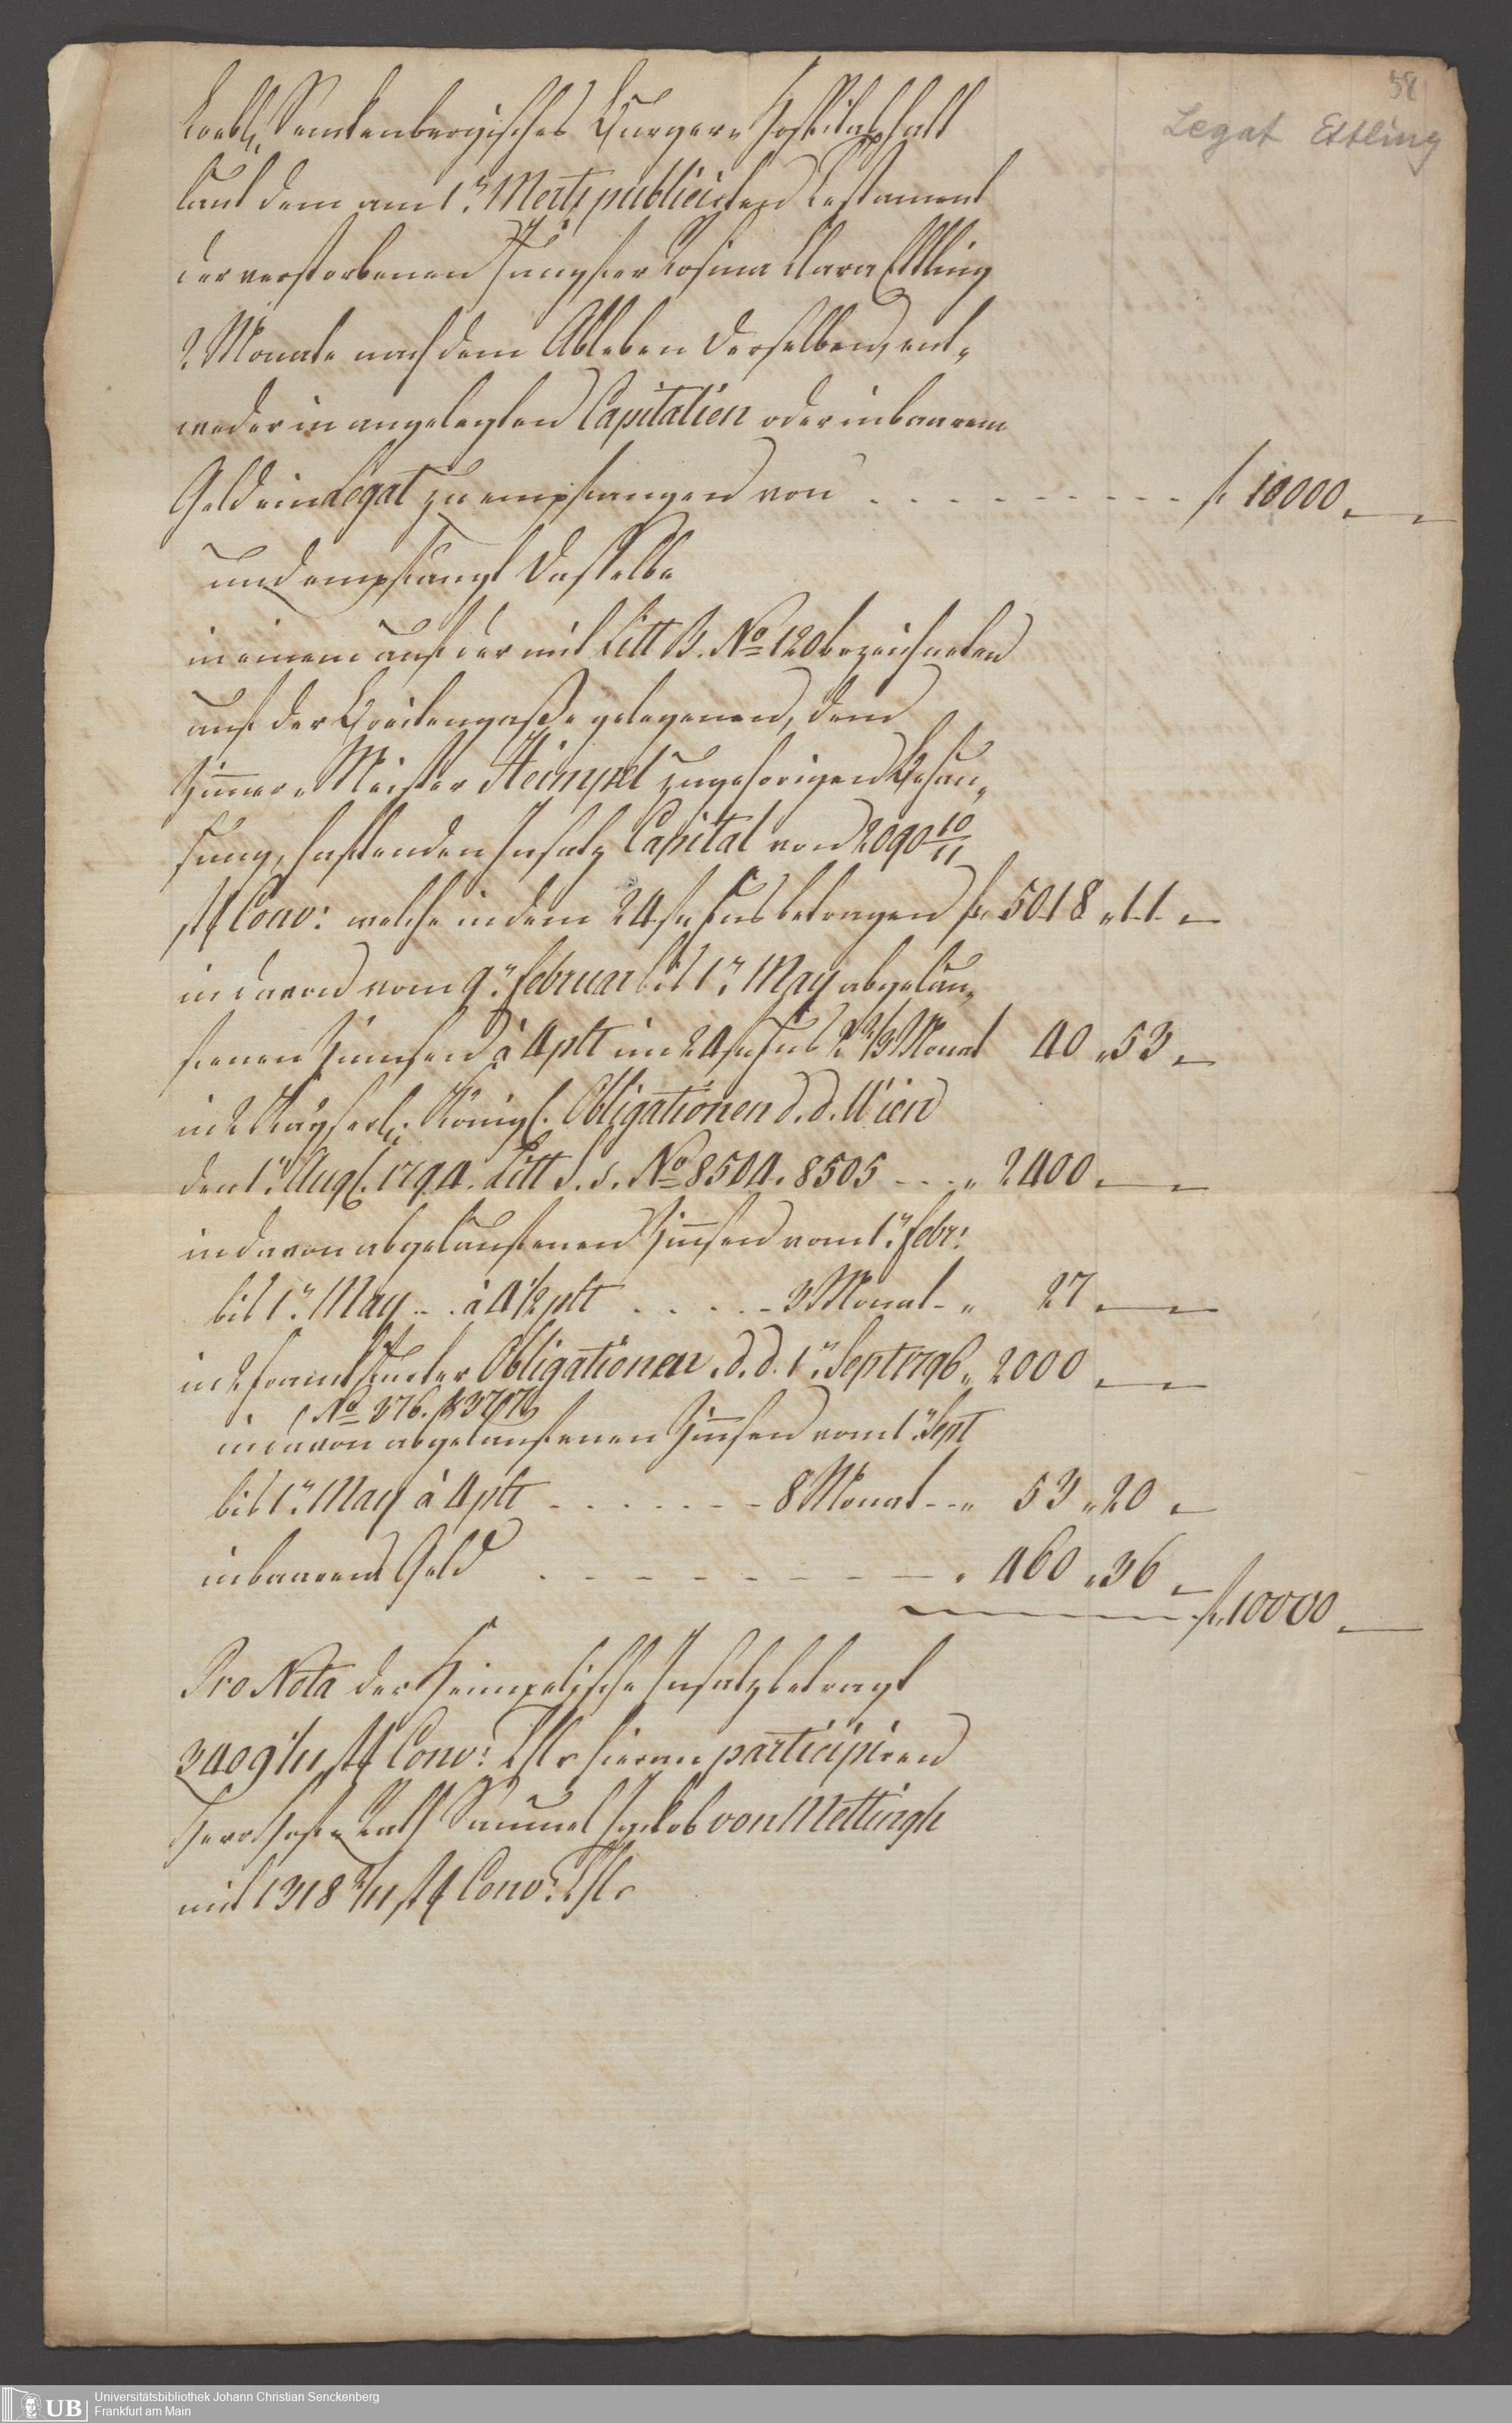 58
Legat Ettling
Loebl. Senckenbergisches Burger- Hospital, hatt
laut dem am 1n Mertz publicirten Testament
der verstorbenen Jungfer Rosina Clara Ettling
2 Monate nach dem Ableben derselben, ent-
weder in angelegten Capitalien oder in baarem
Geld ein Legat zu empfangen von . . . . . . . . . f 10000. —
und empfangt dasselbe
in einem auf der mit Litt B. No 120 bezeichneten
auf der Breitengaße gelegenen, dem
Zimmer- Meister Heimpel zugehorigen Behau-
sung, haftenden Insatz Capital von 2090 10/11
Conv: welche in dem 24 f fus betragen f 5018 „ 11 —
in davon vom 9n februar bis 1n May abgelau-
fenen Zinnsen à 4 pCt im 24 f fus 2 2/3 Monat 40 „ 53 —
in 2 Kayserl. Königl. Obligationen d. d. Wien
den 1n Aug. 1794. Litt No 8504. 8505 - - - „ 2400 —
in davon abgelaufenen Zinsen vom 1n febr:
bis 1n May - . à 4 1/2 pCt . . . . - 3 Monat - „ 27 —
in 2 Franckfurter Obligationen. d. d. 1n Sept 1796 „ 2000 —
No 376. & 377
in davon abgelaufenen Zinsen vom 1n Sept
bis 1n May à 4 pCt - . . . . - - 8 Monat - - „ 53 „ 20 —
in baarem Geld . - - - - - - - - - . 460 „ 36 —
f 10000 —
Pro Nota der Heimpelische Insatz betragt
3409 1/11 Conv: Thlr hieran participiren
Herr Hof- Rath Samuel Jakob von Mettingh
mit 1318 2/11 Conv: Thlr
UB
Universitätsbibliothek Johann Christian Senckenberg
Frankfurt am Main